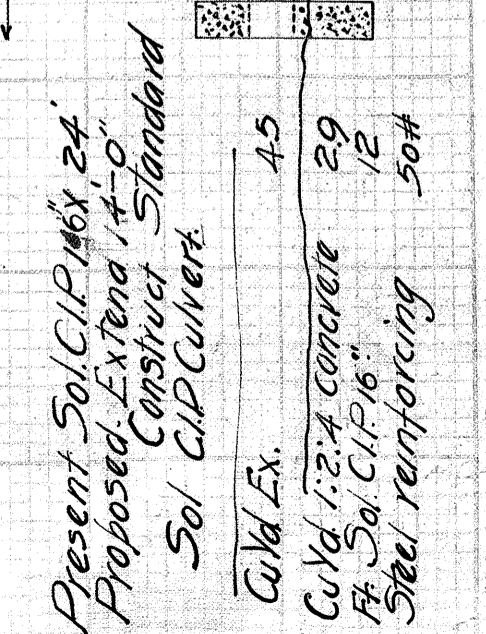 Present Sol. C.I.P. 16"X 24'
Proposed. Extend 14'-0"
Construct Standard
Sol C.I.P. Culvert.
Cu Yd Ex. 45
Cu Yd. 1:2:4 concrete 2.9
Ft. Sol. C.I.P. 16" 12
Steel reinforcing 50#